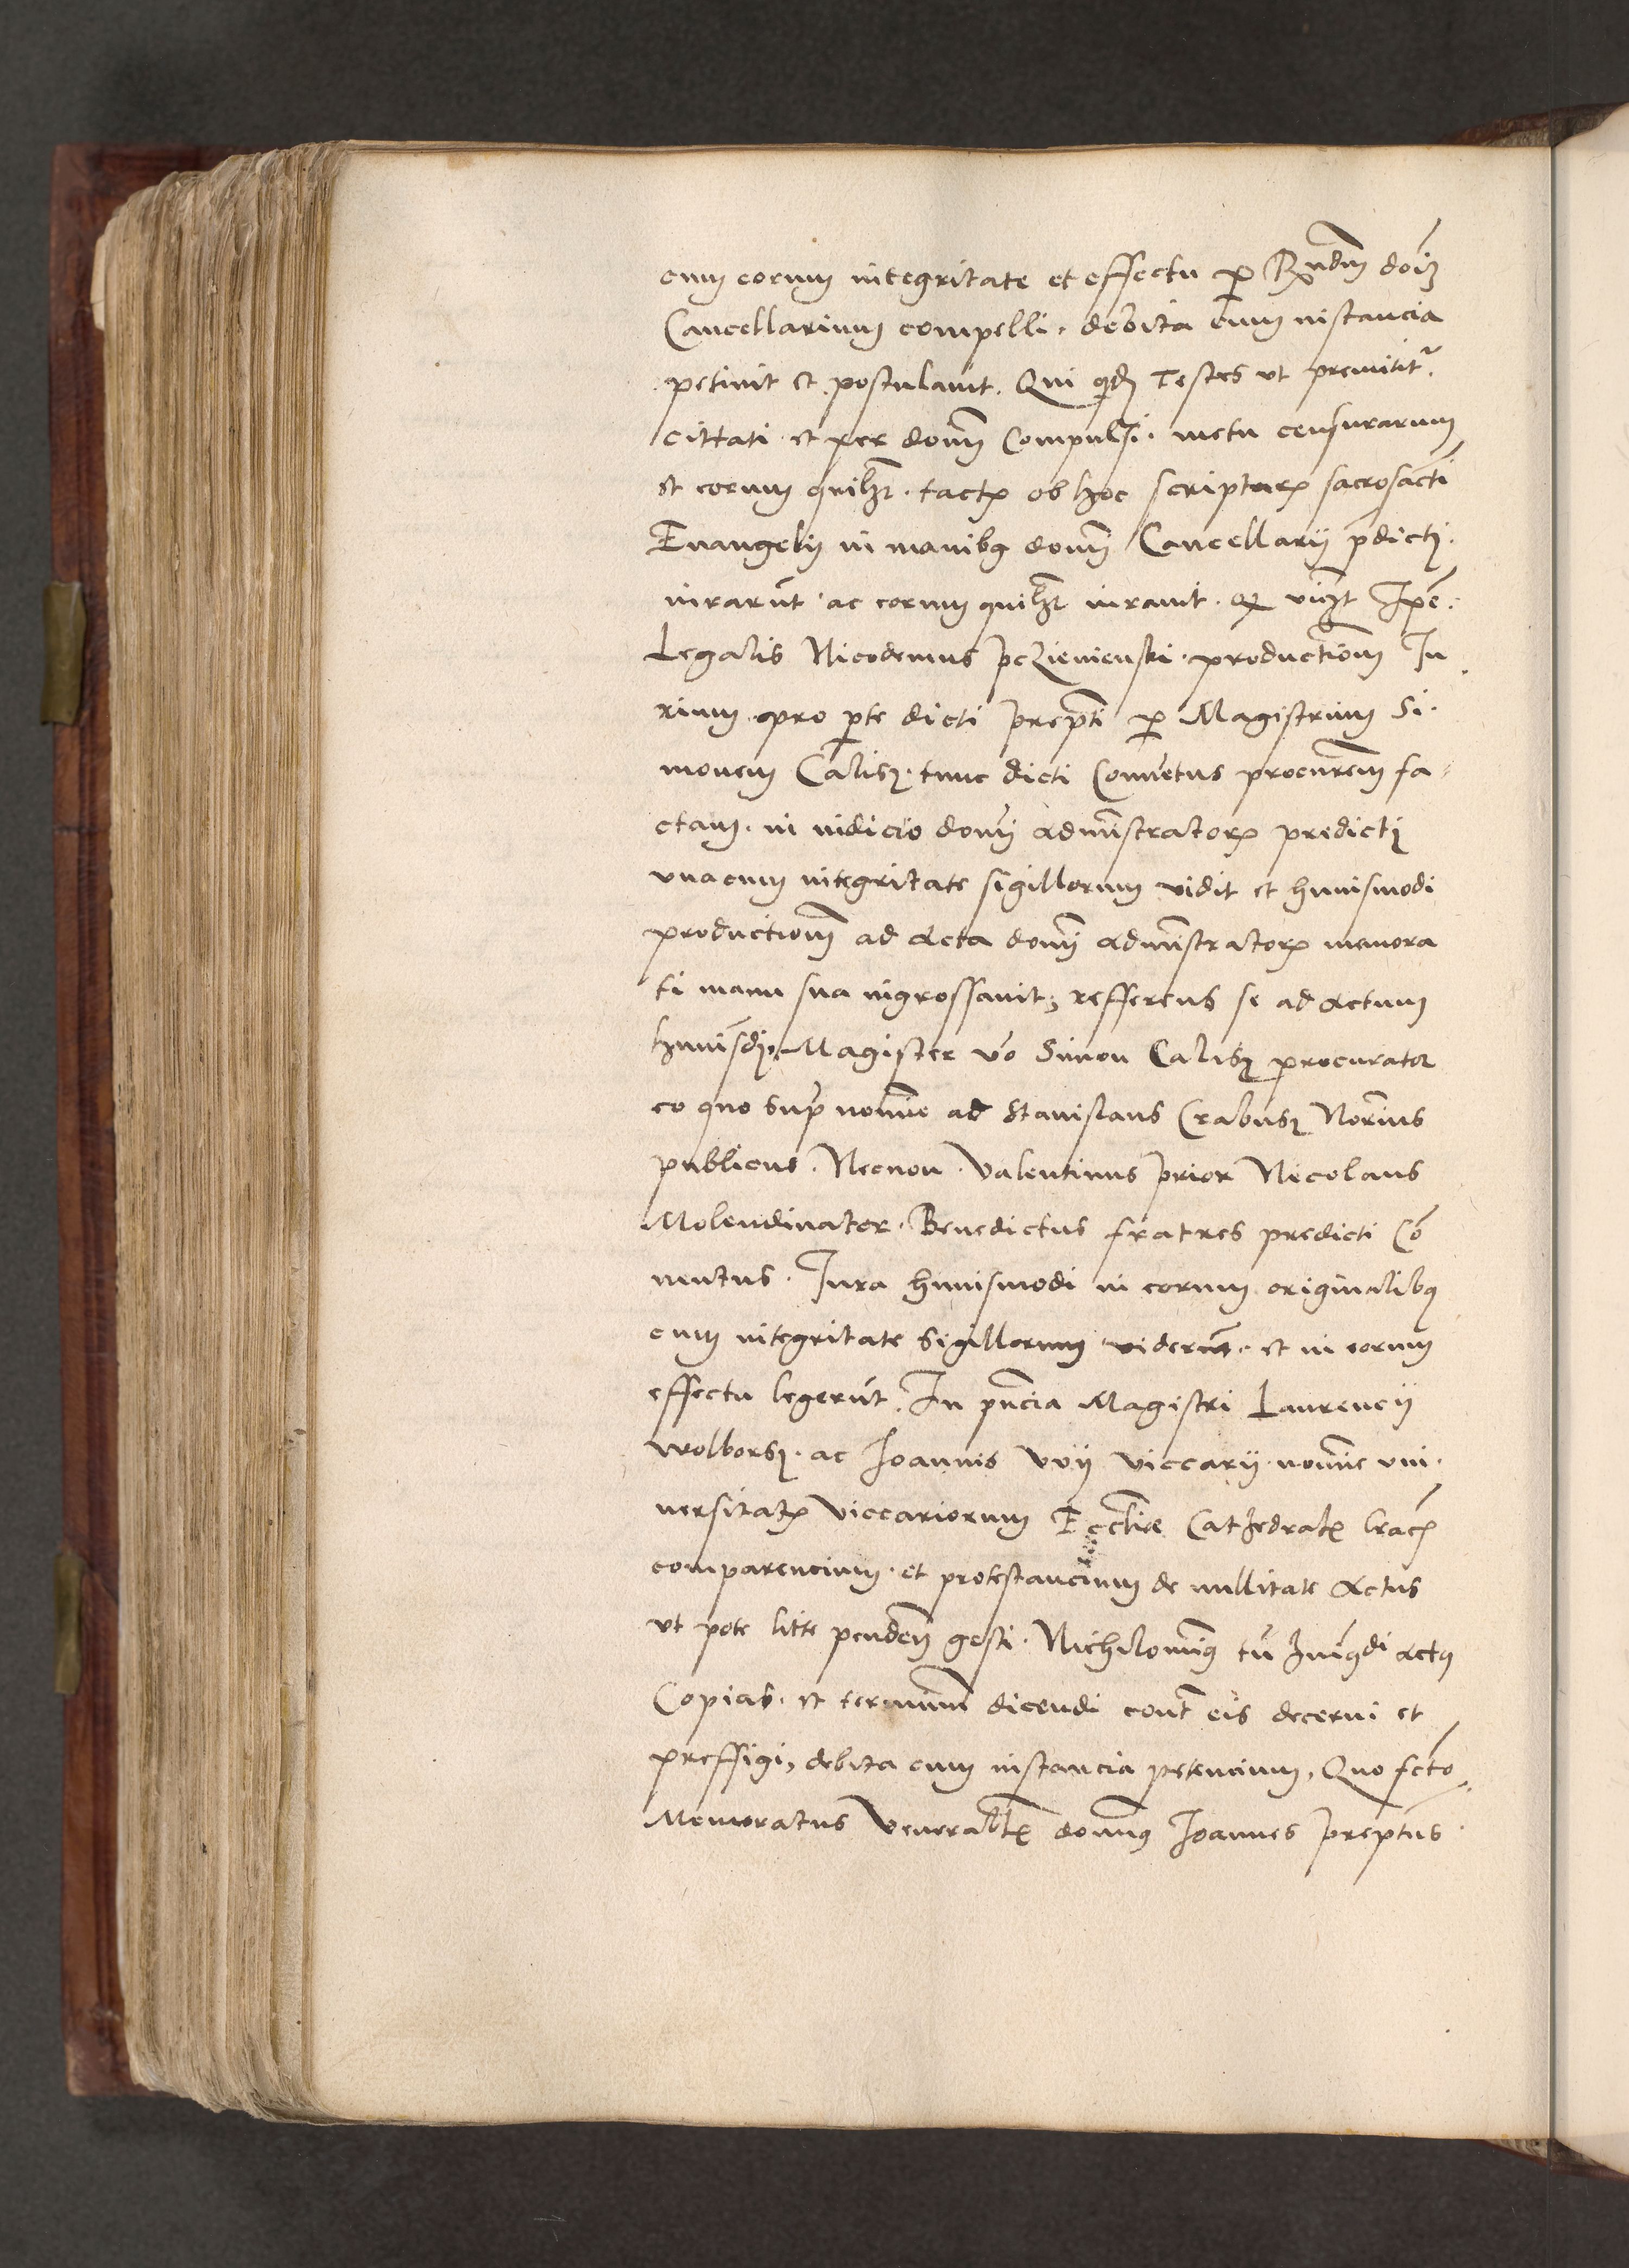 cum eorum integritate et effectu p R̃ndm doīz
Cancellarium compelli. debita cum instancia
petiuit et postulauit. Qui qd̃ Testes vt premititr̃.
cittati et per donm̃ Compulsi. metu censurarum
et eorum quil3t. tactꝭ ob hoc scripturꝭ sacrosãcti
Euangelij in manibꝫ donm̃ Cancellarij p̃dictj.
iurarũt ac eorum quil3t iurauit. qꝫ vic3t Ipẽ.
Legalis Nicodemus productionm̃ Iu
rium pro p̱te dicti prep̃ti p Magistrum Si.
monem Calis3. tunc dicti Conuẽtus procur̃em fa-
ctam. in iudicio donĩ admĩstratorꝭ predictj
vnacum integritate sigillorum vidit et huiusmodi
productionm̃ ad acta donĩ admĩstratorꝭ memora
ti manu sua ingrossauit, refferens se ad actum
huiusd̃j. Magister v̄o Simon Calis3 procurator
eo quo sup̃ nomĩe ad Stanislaus Crabus3 Nor̃ius
publicus. Necnon. Valentinus prior Nicolaus
Molendinator. Benedictus fratres predicti Cō
uentus. Iura huiusmodi in eorum originalibꝫ
cum integritate sigillorum viderũt. et in eorum
effectu legerũt. In pñcia Magistri Laurencij
wolbors3. ac Joannis Vvij viccarij nomĩe vni.
uersitatꝭ viccariorum Eccl̃ie Cathedralꝭ Crac̃
comparencium. et protestancium de nullitate actus
vt pote litte pendeñ gesti. Nichilomĩꝫ tñ huiꝰdi actꝫ
Copias. et terminũ dicendi cont̃ eis decerni et
preffigi, debita cum instancia petencium, Quo fc̃to
Memoratus Venerabłꝭ domnꝫ Joannes prep̃tus.